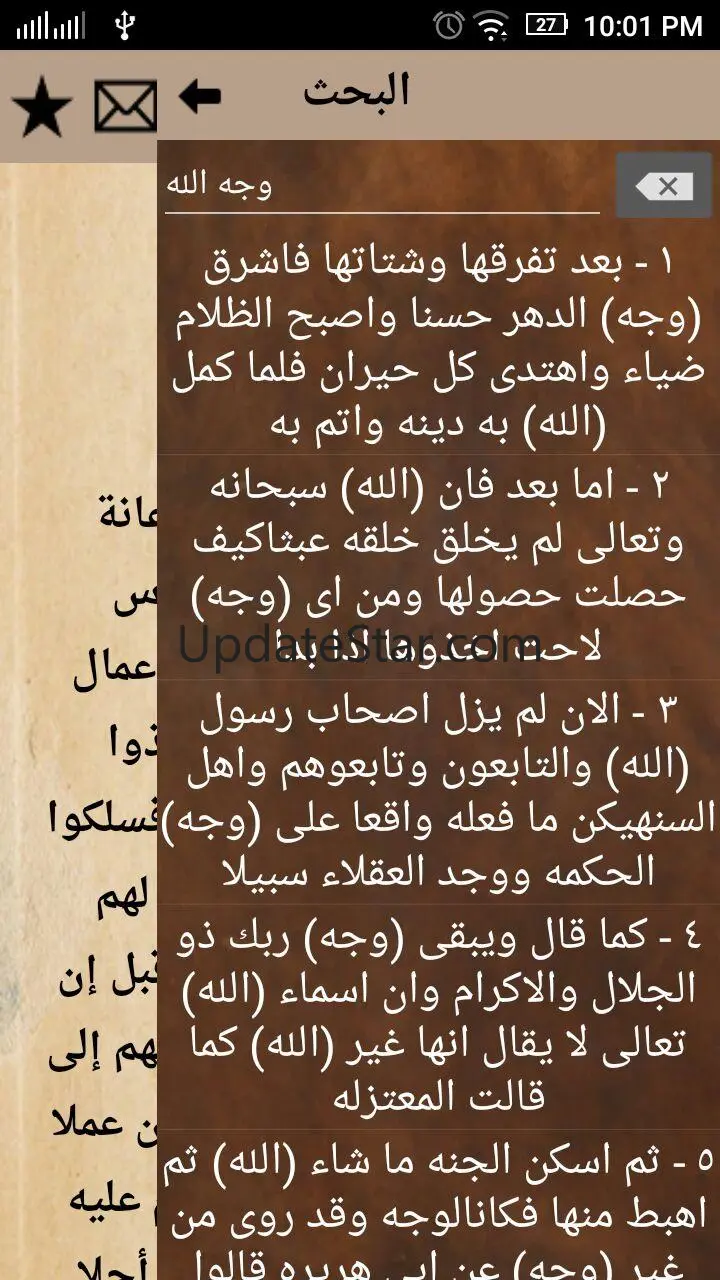 27 10:01 PM
البحث
وجه الله
١ - بعد تفرقها وشتاتها فاشرق
(وجه) الدهر حسنا واصبح الظلام
ضياء واهتدى كل حيران فلما كمل
(الله) به دينه واتم به
٢ - اما بعد فان (الله) سبحانه
وتعالى لم يخلق خلقه عبثاكيف
حصلت حصولها ومن اى (وجه)
لاحت اخذوها اذا بدا
UpdateStar.com
٣ - الان لم يزل اصحاب رسول
(الله) والتابعون وتابعوهم واهل
السنهيكن ما فعله واقعا على (وجه)
الحكمه ووجد العقلاء سبيلا
٤ - كما قال ويبقى (وجه) ربك ذو
الجلال والاكرام وان اسماء (الله)
تعالى لا يقال انها غير (الله) كما
قالت المعتزله
٥ - ثم اسكن الجنه ما شاء (الله) ثم
اهبط منها فكانالوجه وقد روى من
غير (وجه) عن ابى هريره قالوا
عمال
فسلكوا
لهم
قبل إن
هم إلى
ن عملا
عليه
أجلا